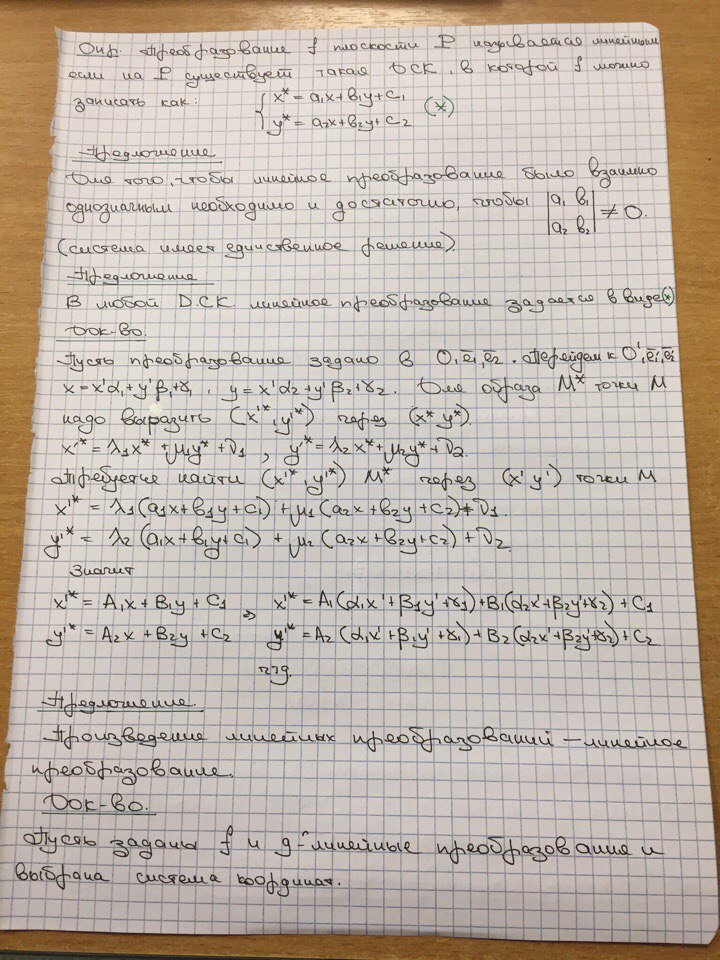 Опр. Преобразование f плоскости P называется линейным
если на P существует такая ДСК, в которой f можно
записать как: { x* = a₁x+b₁y+c₁
y* = a₂x+b₂y+c₂ (*)
Предложение
Для того, чтобы линейное преобразование было взаимно
однозначным необходимо и достаточно, чтобы |a₁ b₁|
|a₂ b₂| ≠ 0.
(система имеет единственное решение).
Предложение
В любой Д.С.К линейное преобразование задается в виде(*)
Док-во.
Пусть преобразование задано в O, e̅₁, e̅₂. Перейдем к O', e̅₁', e̅₂'
x = x'α₁+y'β₁+γ₁, y = x'α₂+y'β₂+γ₂. Для образа M* точки M
надо выразить (x'*, y'*) через (x* y*).
x'* = λ₁x* + μ₁y* + ν₁, y'* = λ₂x* + μ₂y* + ν₂.
Требуется найти (x'*, y'*) M* через (x' y') точки M
x'* = λ₁(a₁x+b₁y+c₁) + μ₁(a₂x+b₂y+c₂) + ν₁.
y'* = λ₂(a₁x+b₁y+c₁) + μ₂(a₂x+b₂y+c₂) + ν₂
Значит
x'* = A₁x + B₁y + C₁ ⇒ x'* = A₁(α₁x'+β₁y'+γ₁)+B₁(α₂x'+β₂y'+γ₂)+C₁
y'* = A₂x + B₂y + C₂ y'* = A₂(α₁x'+β₁y'+γ₁)+B₂(α₂x'+β₂y'+γ₂)+C₂
чтд.
Предложение.
Произведение линейных преобразований – линейное
преобразование.
Док-во.
Пусть заданы f и g – линейные преобразования и
выбрана система координат.